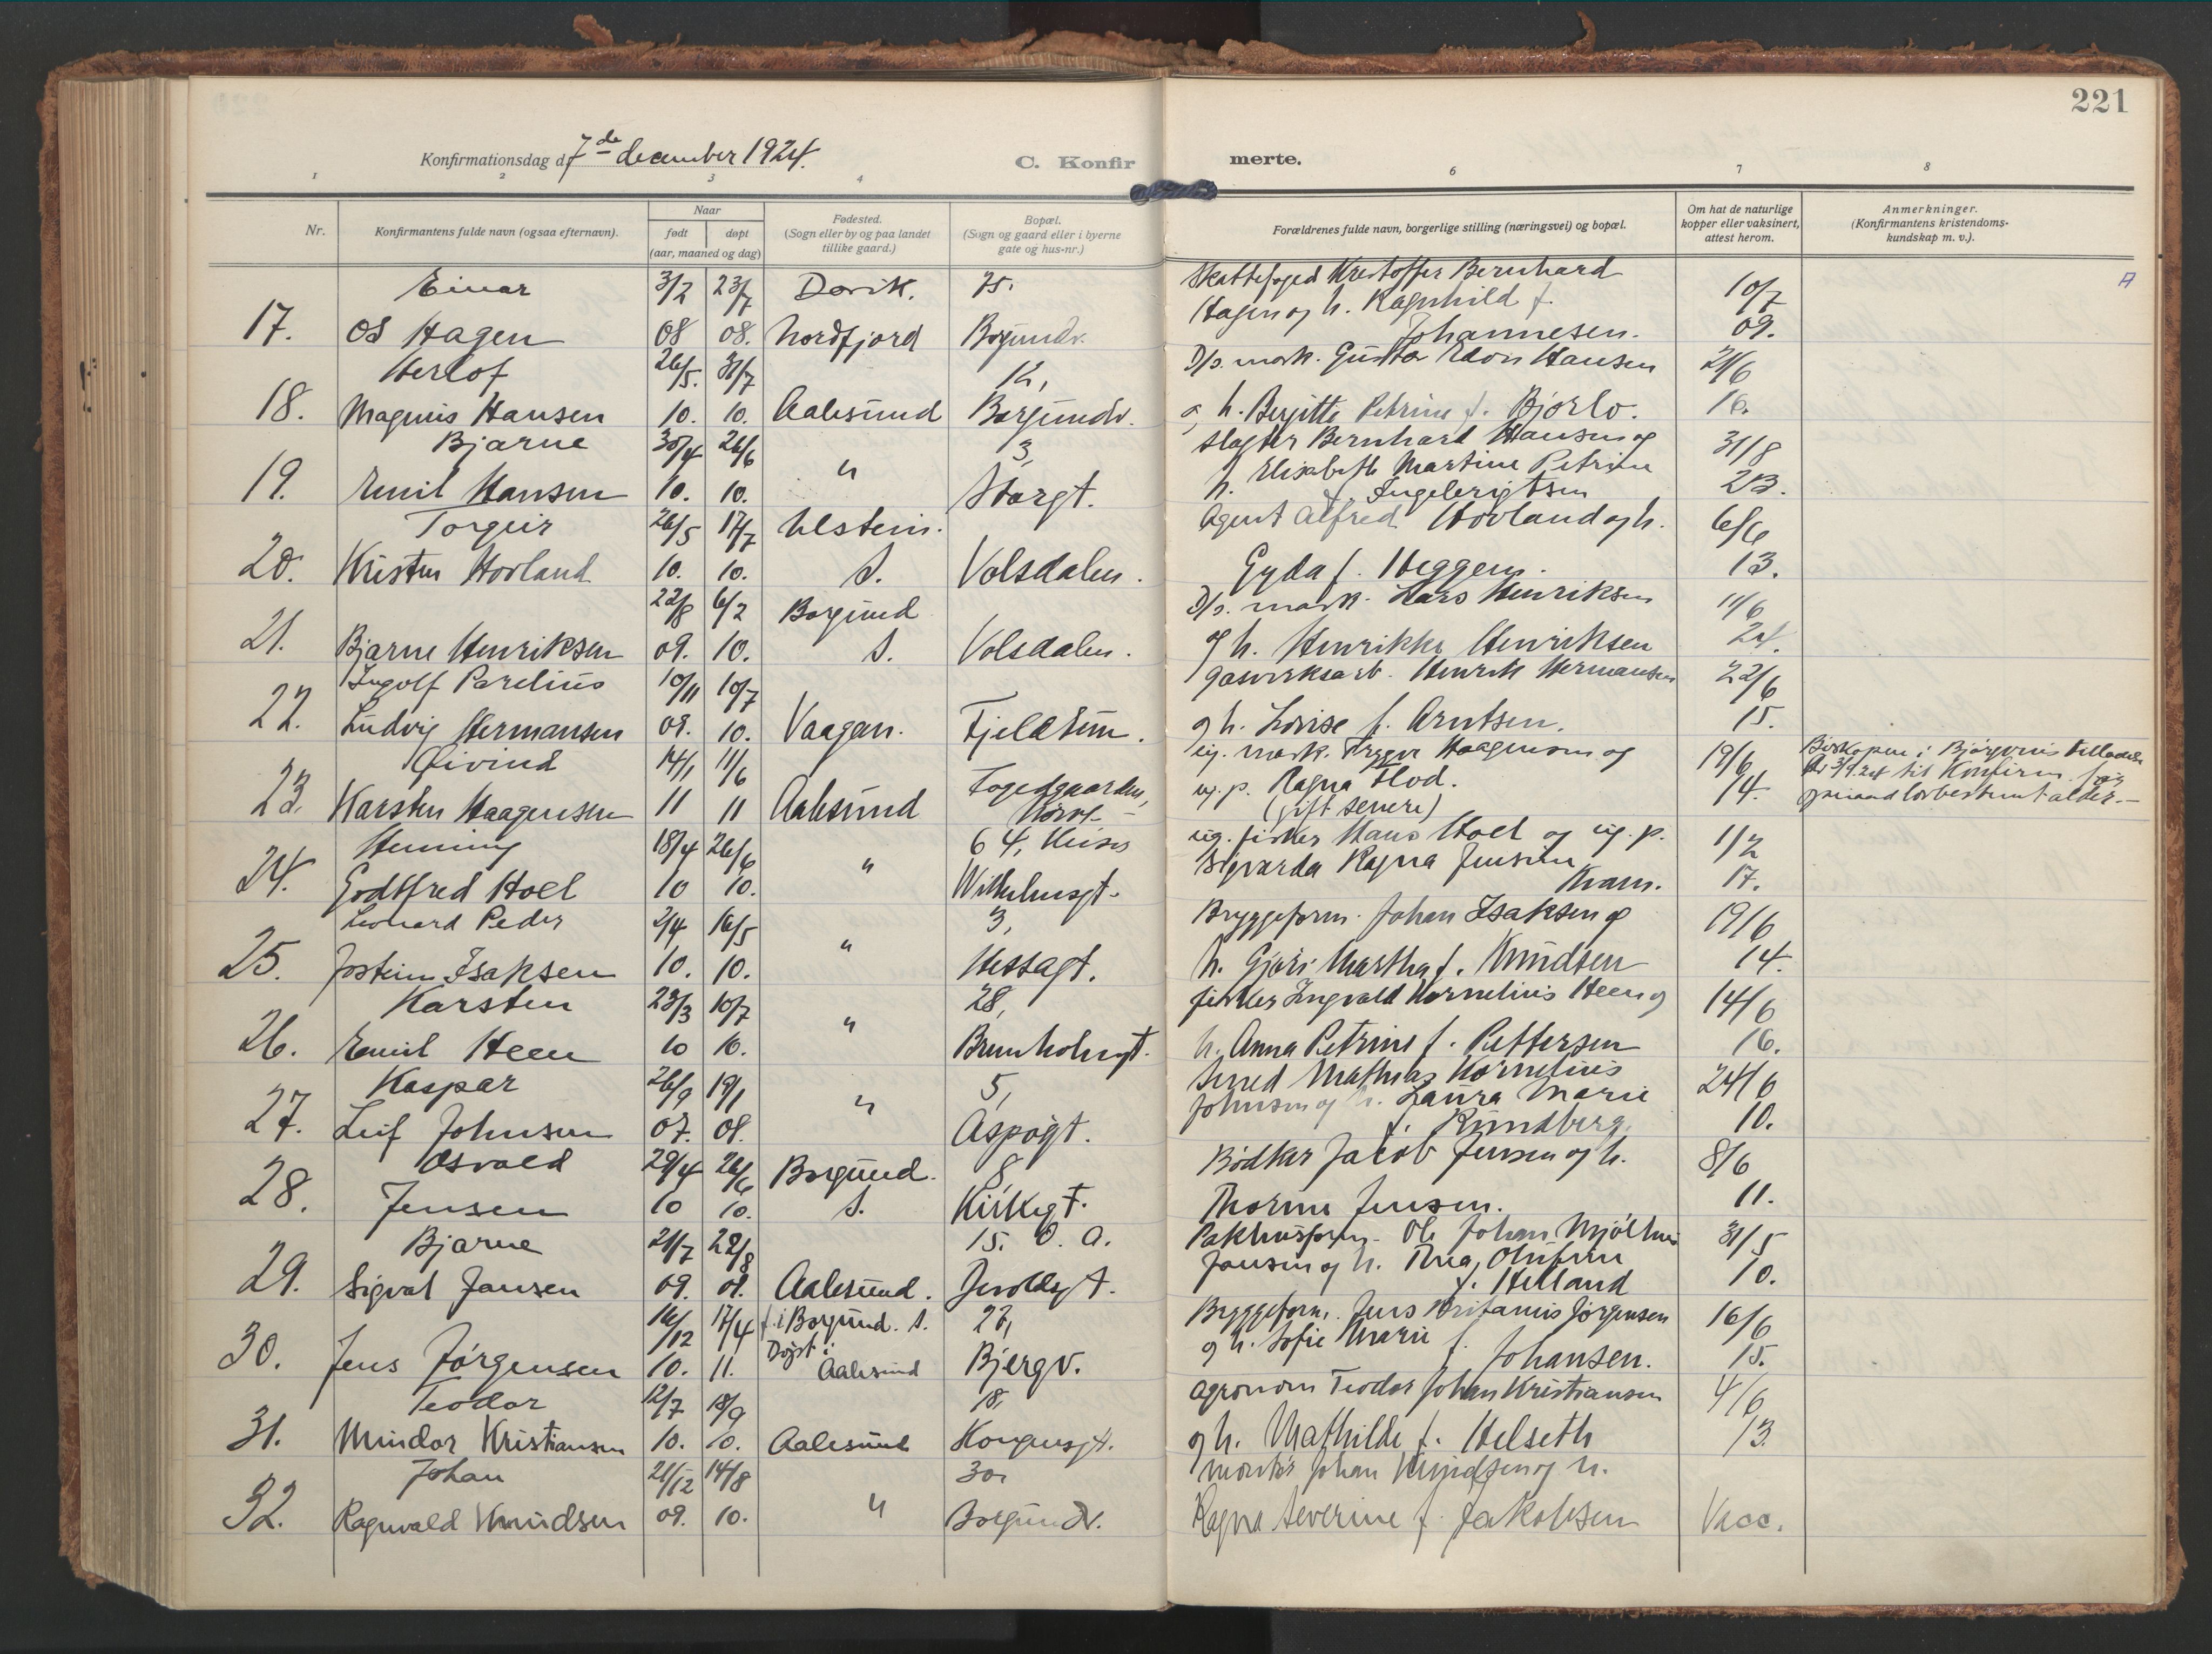 221
Konfirmationsdag d. 7de december 1924.
C. Konfirmerte.
1 2 3 4 6 7 8
Nr.
Konfirmantens fulde navn (ogsaa efternavn).
Naar
født døpt
(aar, maaned og dag)
Fødested.
(Sogn eller by og paa landet
tillike gaard.)
Bopæl.
(Sogn og gaard eller i byerne
gate og hus-nr.)
Forældrenes fulde navn, borgerlige stilling (næringsvei) og bopæl.
Om hat de naturlige
kopper eller vaksinert,
attest herom.
Anmerkninger.
(Konfirmantens kristendoms-
kundskap m. v.).
Einar 3/2 23/7 75. Skattefoged Kristoffer Bernhard 10/7
Hagen og h. Ragnhild f.
17. Os Hagen 08 08. Nordfjord Borgundv. Johannesen. 09.
Herlof 26/5. 31/7 12, D/s. mask. Gustav Edon Hansen 21/6
18. Magnus Hansen 10. 10. Aalesund Borgundv. o, h. Birgitte Petrine f. Bjørlo. 16.
Bjarne 30/4 26/6 " 3, Slagter Bernhard Hansen og 31/8
h. Elisabeth Martine Petrine
19. Emil Hansen 10. 10. Storgt. f. Ingebrigtsen 23.
Torgeir 26/5 17/7 Ulstein. Agent Alfred Hovland og h. 6/6
20. Kristen Hovland 10. 10. s. Volsdalen. Gyda f. Heggem. 13.
22/8 6/2 Borgund D/s. mask. Lars Henriksen 11/6
21. Bjarne Henriksen 09. 10. s. Volsdalen. og h. Henrikke Henriksen 24.
Ingolf Parelius 10/11 10/7 Gasverksarb. Henrik Hermansen 22/6
22. Ludvig Hermansen 09. 10. Vaagan. Fjeldtun. og h. Lovise f. Arntsen. 15.
Øivind 14/1 11/6 Fogedgaarden, ug. mask. Trygve Haagensen og 19/6 Biskopen i Bjørgvins tilladelse
av 3/9.24 til Konfirm. før
23. Karsten Haagensen 11 11 Aalesund ug. p. Ragna Flod. 14. lovbestemt alder.-
(gift senere)
Henning 18/4 26/6 " 64, Keiser ug. fisker Hans Hoel og ug. p. 1/2
Sigvarda Ragna Jensine
24. Godtfred Hoel 10 10. Wilhelmsgt. Kvam. 17.
Leonard Peder 2/4 16/5 " 3, Bryggeform. Johan Isaksen og 19/6
25. Jostein Isaksen 10. 10. Hessagt. h. Gjøri Martha f. Knudsen 14.
Karsten 23/3 10/7 " 28, fisker Ingvald Kornelius Heen og 14/6
26. Emil Heen 10 10. Brunholmgt. h. Anna Petrine f. Pettersen 16.
Kaspar 26/9 19/1 " 5, Smed Mathias Kornelius 24/6
Johnsen og h. Laura Marie
27. Leif Johnsen 07. 08. Aspøgt. f. Rundberg. 10.
Osvald 29/4 26/6 Borgund. 8, Bødker Jakob Jensen og h. 8/6
28. Jensen 10 10. s. Kirkegt. Thorine Jensen. 11.
Bjarne 21/7 22/8 15. O. A. Pakhusform. Ole Johan Mjølhus 31/5
Jansen og h. Thea Olufine
29. Sigvat Jansen 09. 09. Aalesund. Devoldsgt. f. Helland 10.
16/12 17/4 f. i Borgund. s. 27, Bryggeform. Jens Kritanus Jørgensen 16/6
Døpt i og h. Sofie Marie f.
30. Jens Jørgensen 10. 11. Aalesund Bjergv. Johansen. 15.
Teodor 12/7 18/9 18, Agronom Teodor Johan Kristiansen 4/6
31. Mindor Kristiansen 10. 10. Aalesund Kongensgt. og h. Mathilde f. Helseth 13.
Johan 21/12 14/8 " 30, Montør Johan Knudsen og h.
32. Ragnvald Knudsen 09. 10. Borgundv. Ragna Severine f. Jakobsen Vacc.